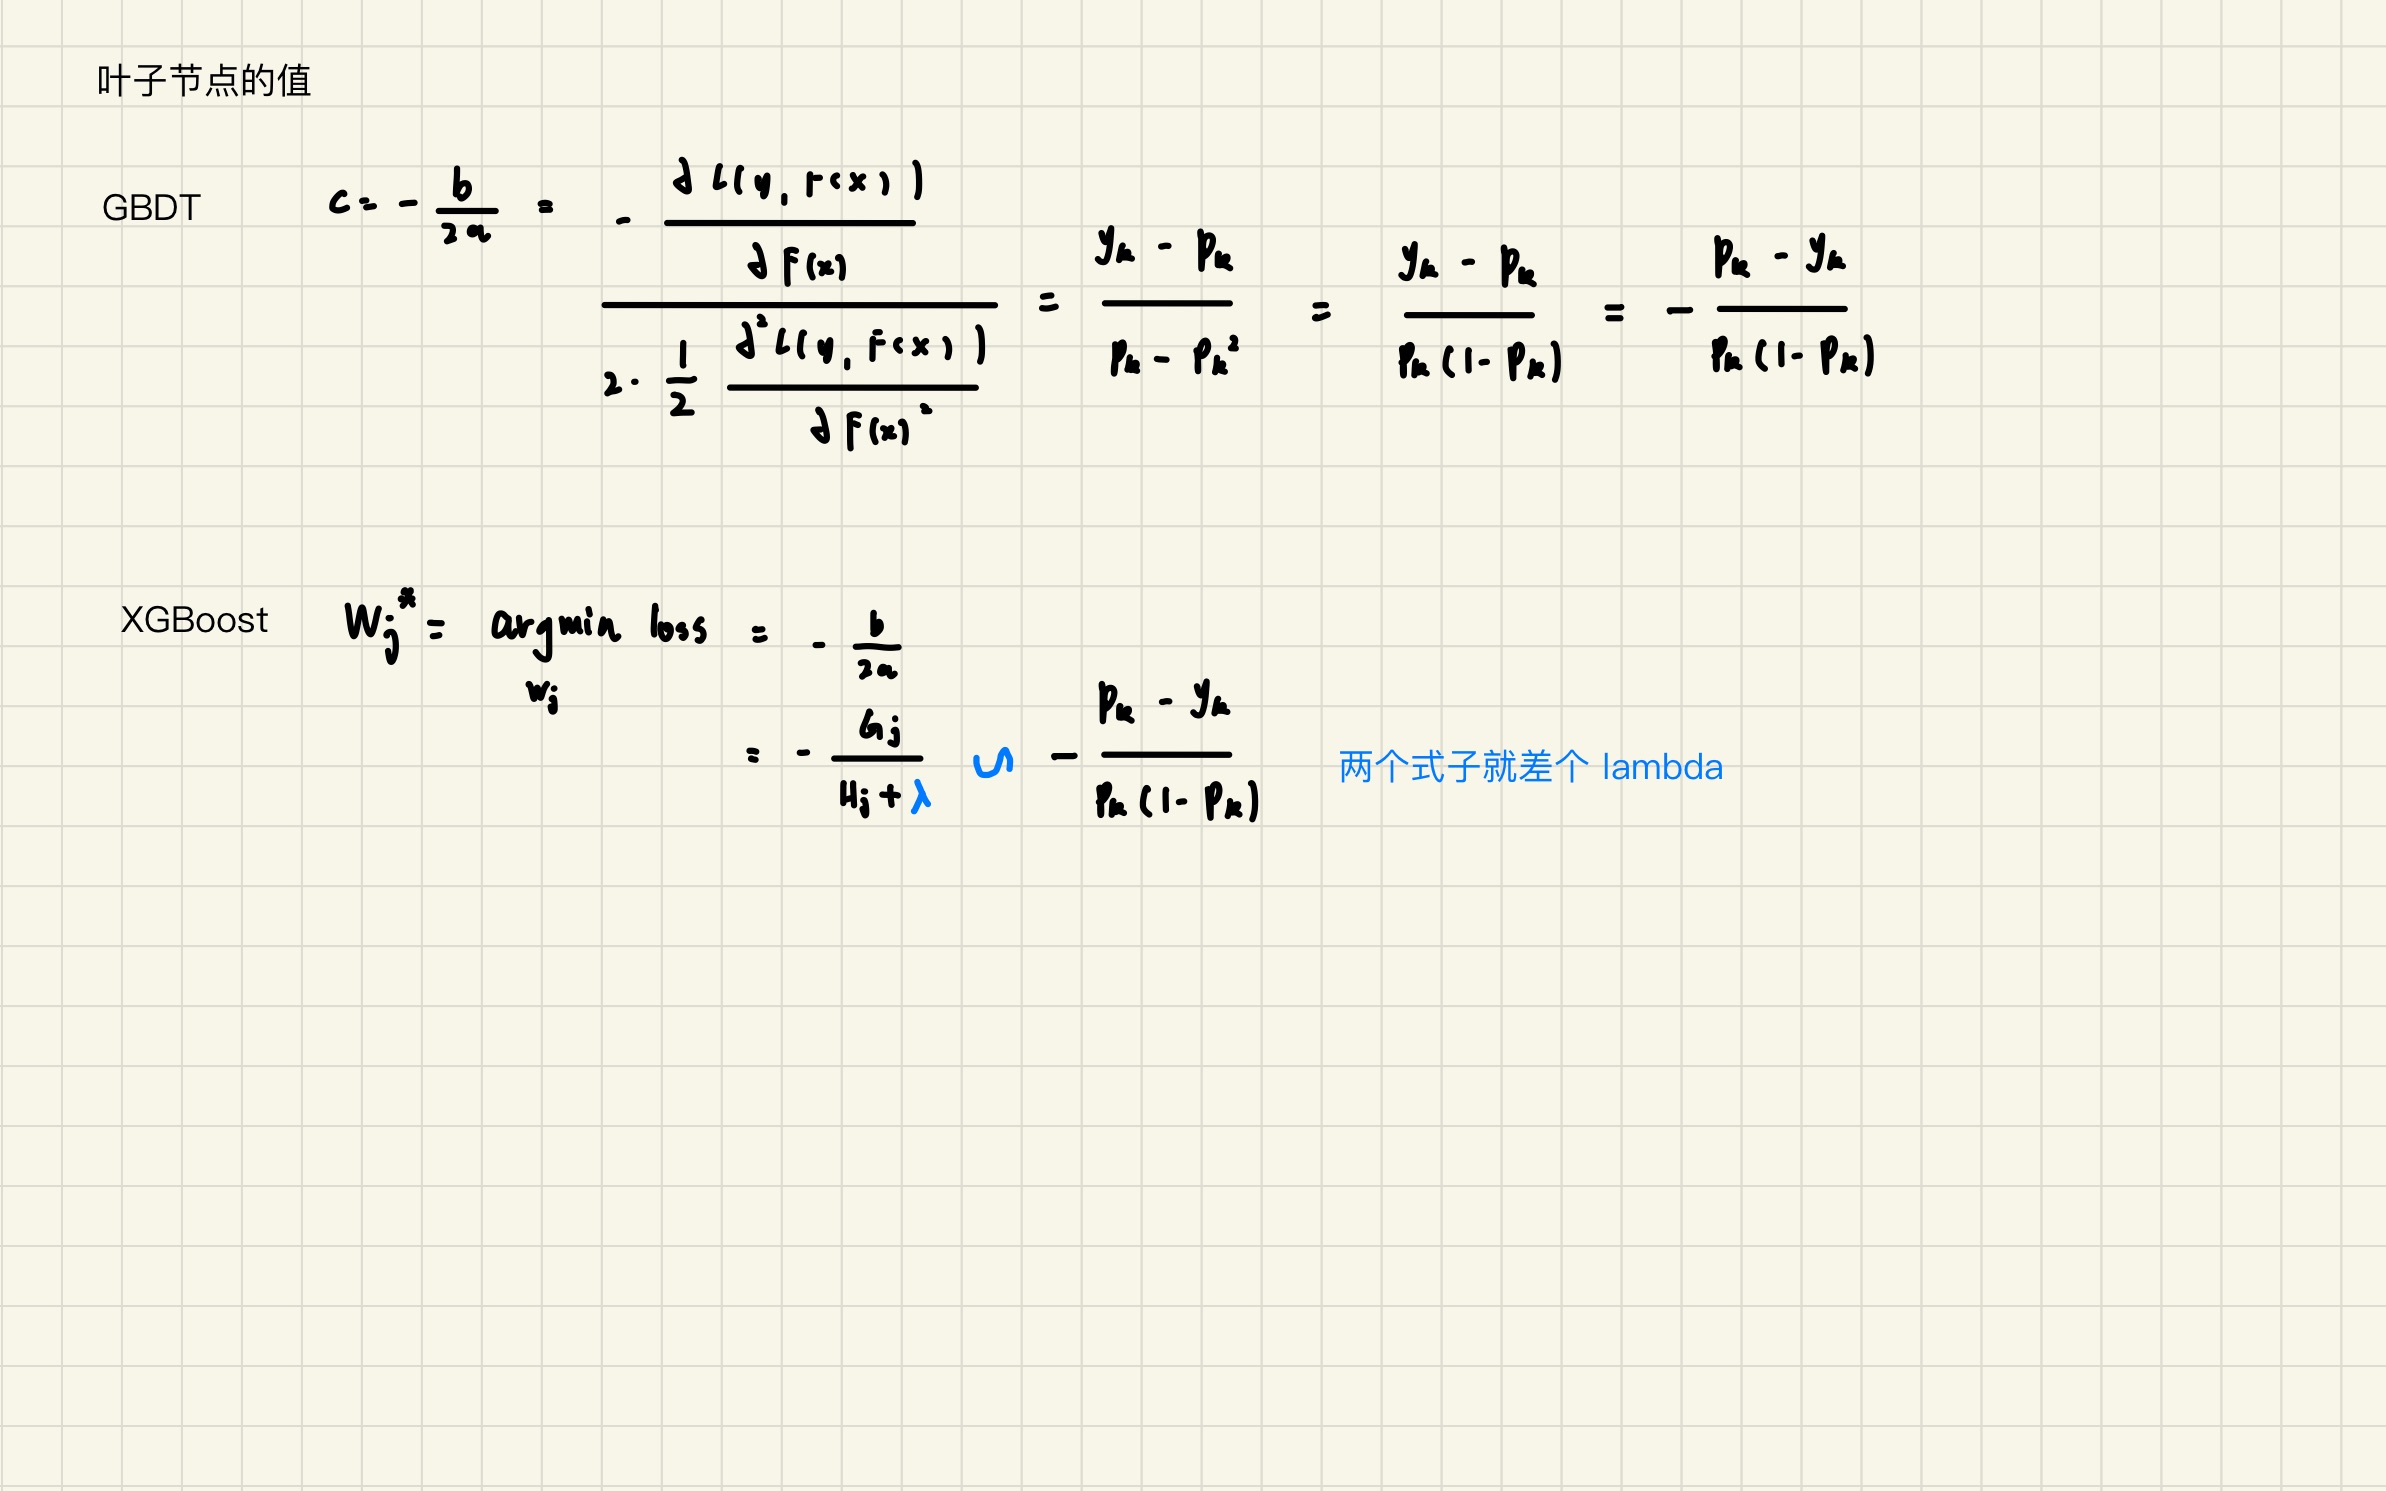 叶子节点的值
GBDT c = - b/2a = - (∂L(y, F(x)) / ∂F(x)) / (2 · 1/2 ∂²L(y, F(x)) / ∂F(x)²) = (yk - pk) / (pk - pk²) = (yk - pk) / (pk(1 - pk)) = - (pk - yk) / (pk(1 - pk))
XGBoost Wj* = argmin loss = - b/2a
wj
= - Gj / (Hj + λ) ∽ - (pk - yk) / (pk(1 - pk)) 两个式子就差个 lambda